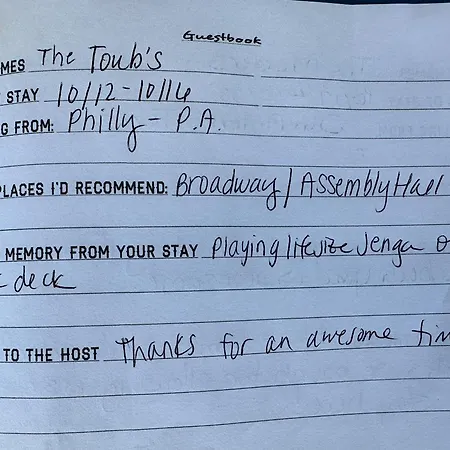 Guestbook
MES The Toub's
STAY 10/12-10/16
G FROM: Philly - P.A.
PLACES I'D RECOMMEND: Broadway / Assembly Hall
MEMORY FROM YOUR STAY Playing lifesize Jenga o
deck
TO THE HOST Thanks for an awesome tim